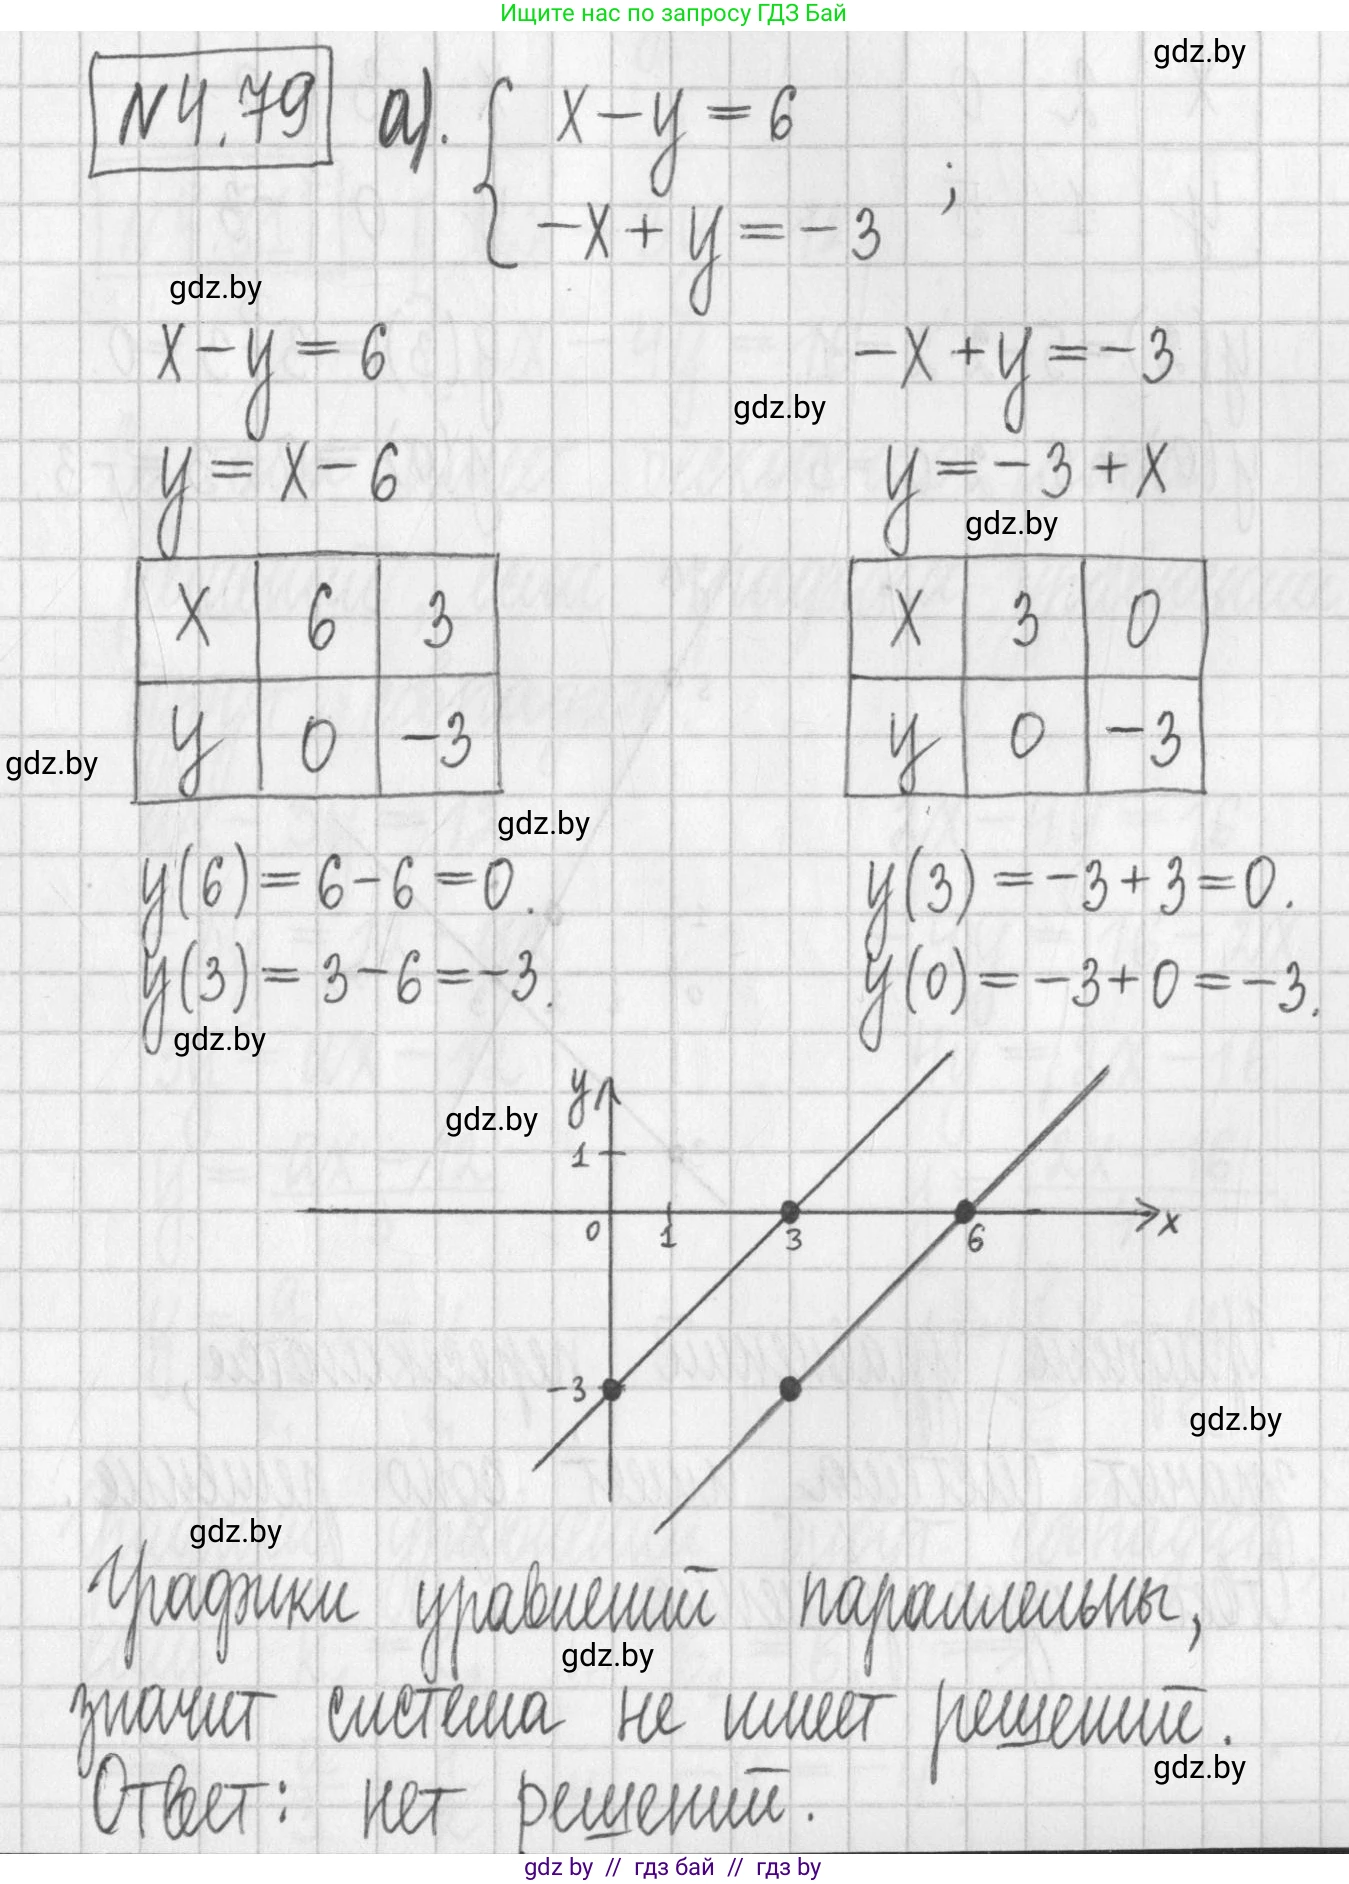 Ищите нас по запросу ГДЗ Бай
gdz.by
N4.79 а). { x-y=6
-x+y=-3 ;
gdz.by
x-y=6 -x+y=-3
gdz.by
y=x-6 y=-3+x
gdz.by
x 6 3 x 3 0
y 0 -3 y 0 -3
gdz.by
gdz.by
y(6)=6-6=0. y(3)=-3+3=0.
y(3)=3-6=-3. y(0)=-3+0=-3.
gdz.by
y
gdz.by
1
0 1 3 6 x
-3
gdz.by
gdz.by
Графики уравнений параллельны,
gdz.by
значит система не имеет решений.
gdz.by
Ответ: нет решений.
gdz by // гдз бай // гдз by